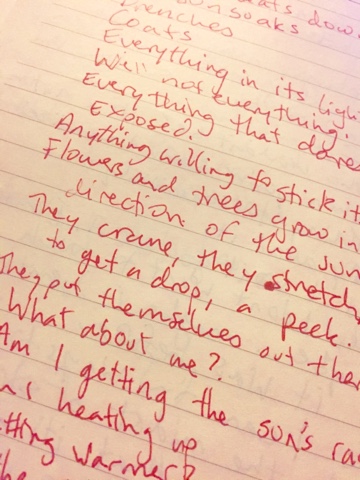 beats down
sun soaks
Drenches
Coats
Everything in its light
Well not everything.
Everything that dares
Exposed.
Anything willing to stick it
Flowers and trees grow in
direction of the sun
They crane, they stretch
to get a drop, a peek.
They put themselves out there
What about me?
Am I getting the sun's ra
heating up
tting warmer?
the